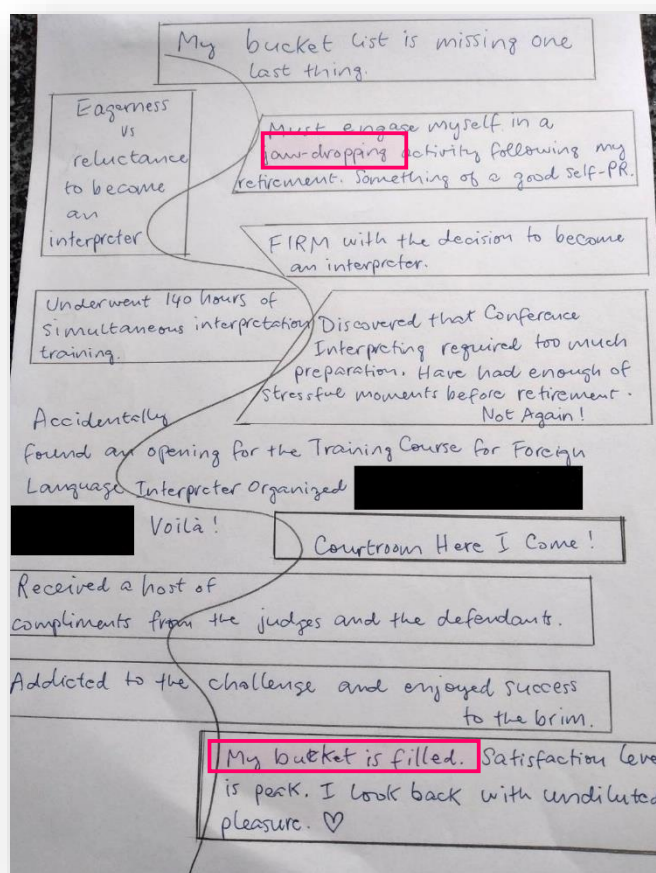 My bucket list is missing one
last thing.
Eagerness
vs
reluctance
to become
an
interpreter
Must engage myself in a
jaw-dropping activity following my
retirement. Something of a good self-PR.
FIRM with the decision to become
an interpreter.
Underwent 140 hours of
simultaneous interpretation
training.
Discovered that Conference
Interpreting required too much
preparation. Have had enough of
stressful moments before retirement.
Not Again!
Accidentally
found an opening for the Training Course for Foreign
Language Interpreter Organized
Voilà!
Courtroom Here I Come!
Received a host of
compliments from the judges and the defendants.
Addicted to the challenge and enjoyed success
to the brim.
My bucket is filled. Satisfaction leve
is peak. I look back with undiluted
pleasure. ♡